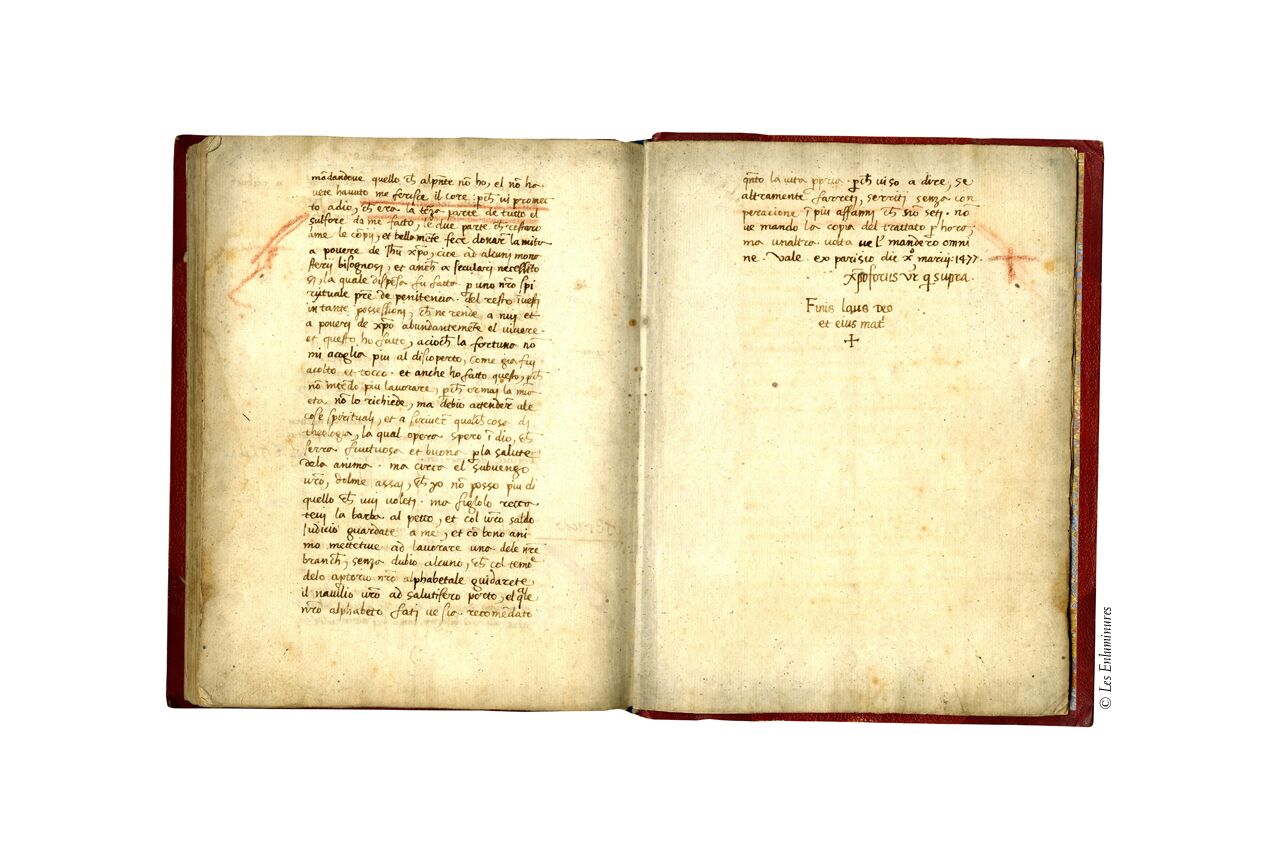 mādandove quello ch̄ alpn̄te nō ho, el nō ha
vete havuto me ferisce il core : pch̄ vi promet
to adio, ch̄ era la t̄za parte de tutto el
sulfore da me fatto, le due parte ch̄ restaro
ame le copij, et bellamēte fece donar la mita
a povere de Jhū xp̄o, cioe ad alcuni mona
sterij bisognosi, et anch̄ a seculari necessito
si, la quale dispesa fu fatta p uno nr̄o spi
rituale pr̄e de penitencia . del resto
in tante possessioni, ch̄ ne rende a nui et
a poveri de xp̄o abundantemēte el vivere .
et questo ho fatto, acioch̄ la fortuna nō
mi acoglia piu al discoperto, come gia fui
acolto et tocco . et anche ho fatto questo, pch̄
nō intēdo piu lavorare, pch̄ ormai la mia
eta nō lo richiede, ma debio attender ale
cose spirituali, et a scriver qualch̄ cosa di
theologia, la qual opera spero ī dio, ch̄
serra fructuosa et buona p la salute
dela anima . ma circa el subvengo
vr̄o, dolme assai, ch̄ yo nō posso piu di
quello ch̄ vui voleti . ma figlolo recca
tevi la barba al petto, et col vr̄o saldo
judicio guardate a me, et cō bono ani
mo mettetive ad lavorare una dele nr̄e
branch̄, senza dubio alcuno, ch̄ col temoē
delo aptorio nr̄o alphabetale guidarete
il navilio vr̄o ad salutifero porto, el qle
nr̄o alphabeto fati ve sia . recomēdato
qnto la vita p̄pria . pch̄ vi so a dire, se
altramente farreti, serriti senza con
peracione ī piu affanni ch̄ nō seti . nō
ve mando la copia del trattato p hora,
ma unaltra volta ve l' manderō omni
ne . Vale . ex parisio die xo marcij . 1477 .
xp̄oforus vr̄ q̄ supra .
Finis laus deo
et eius mat̄